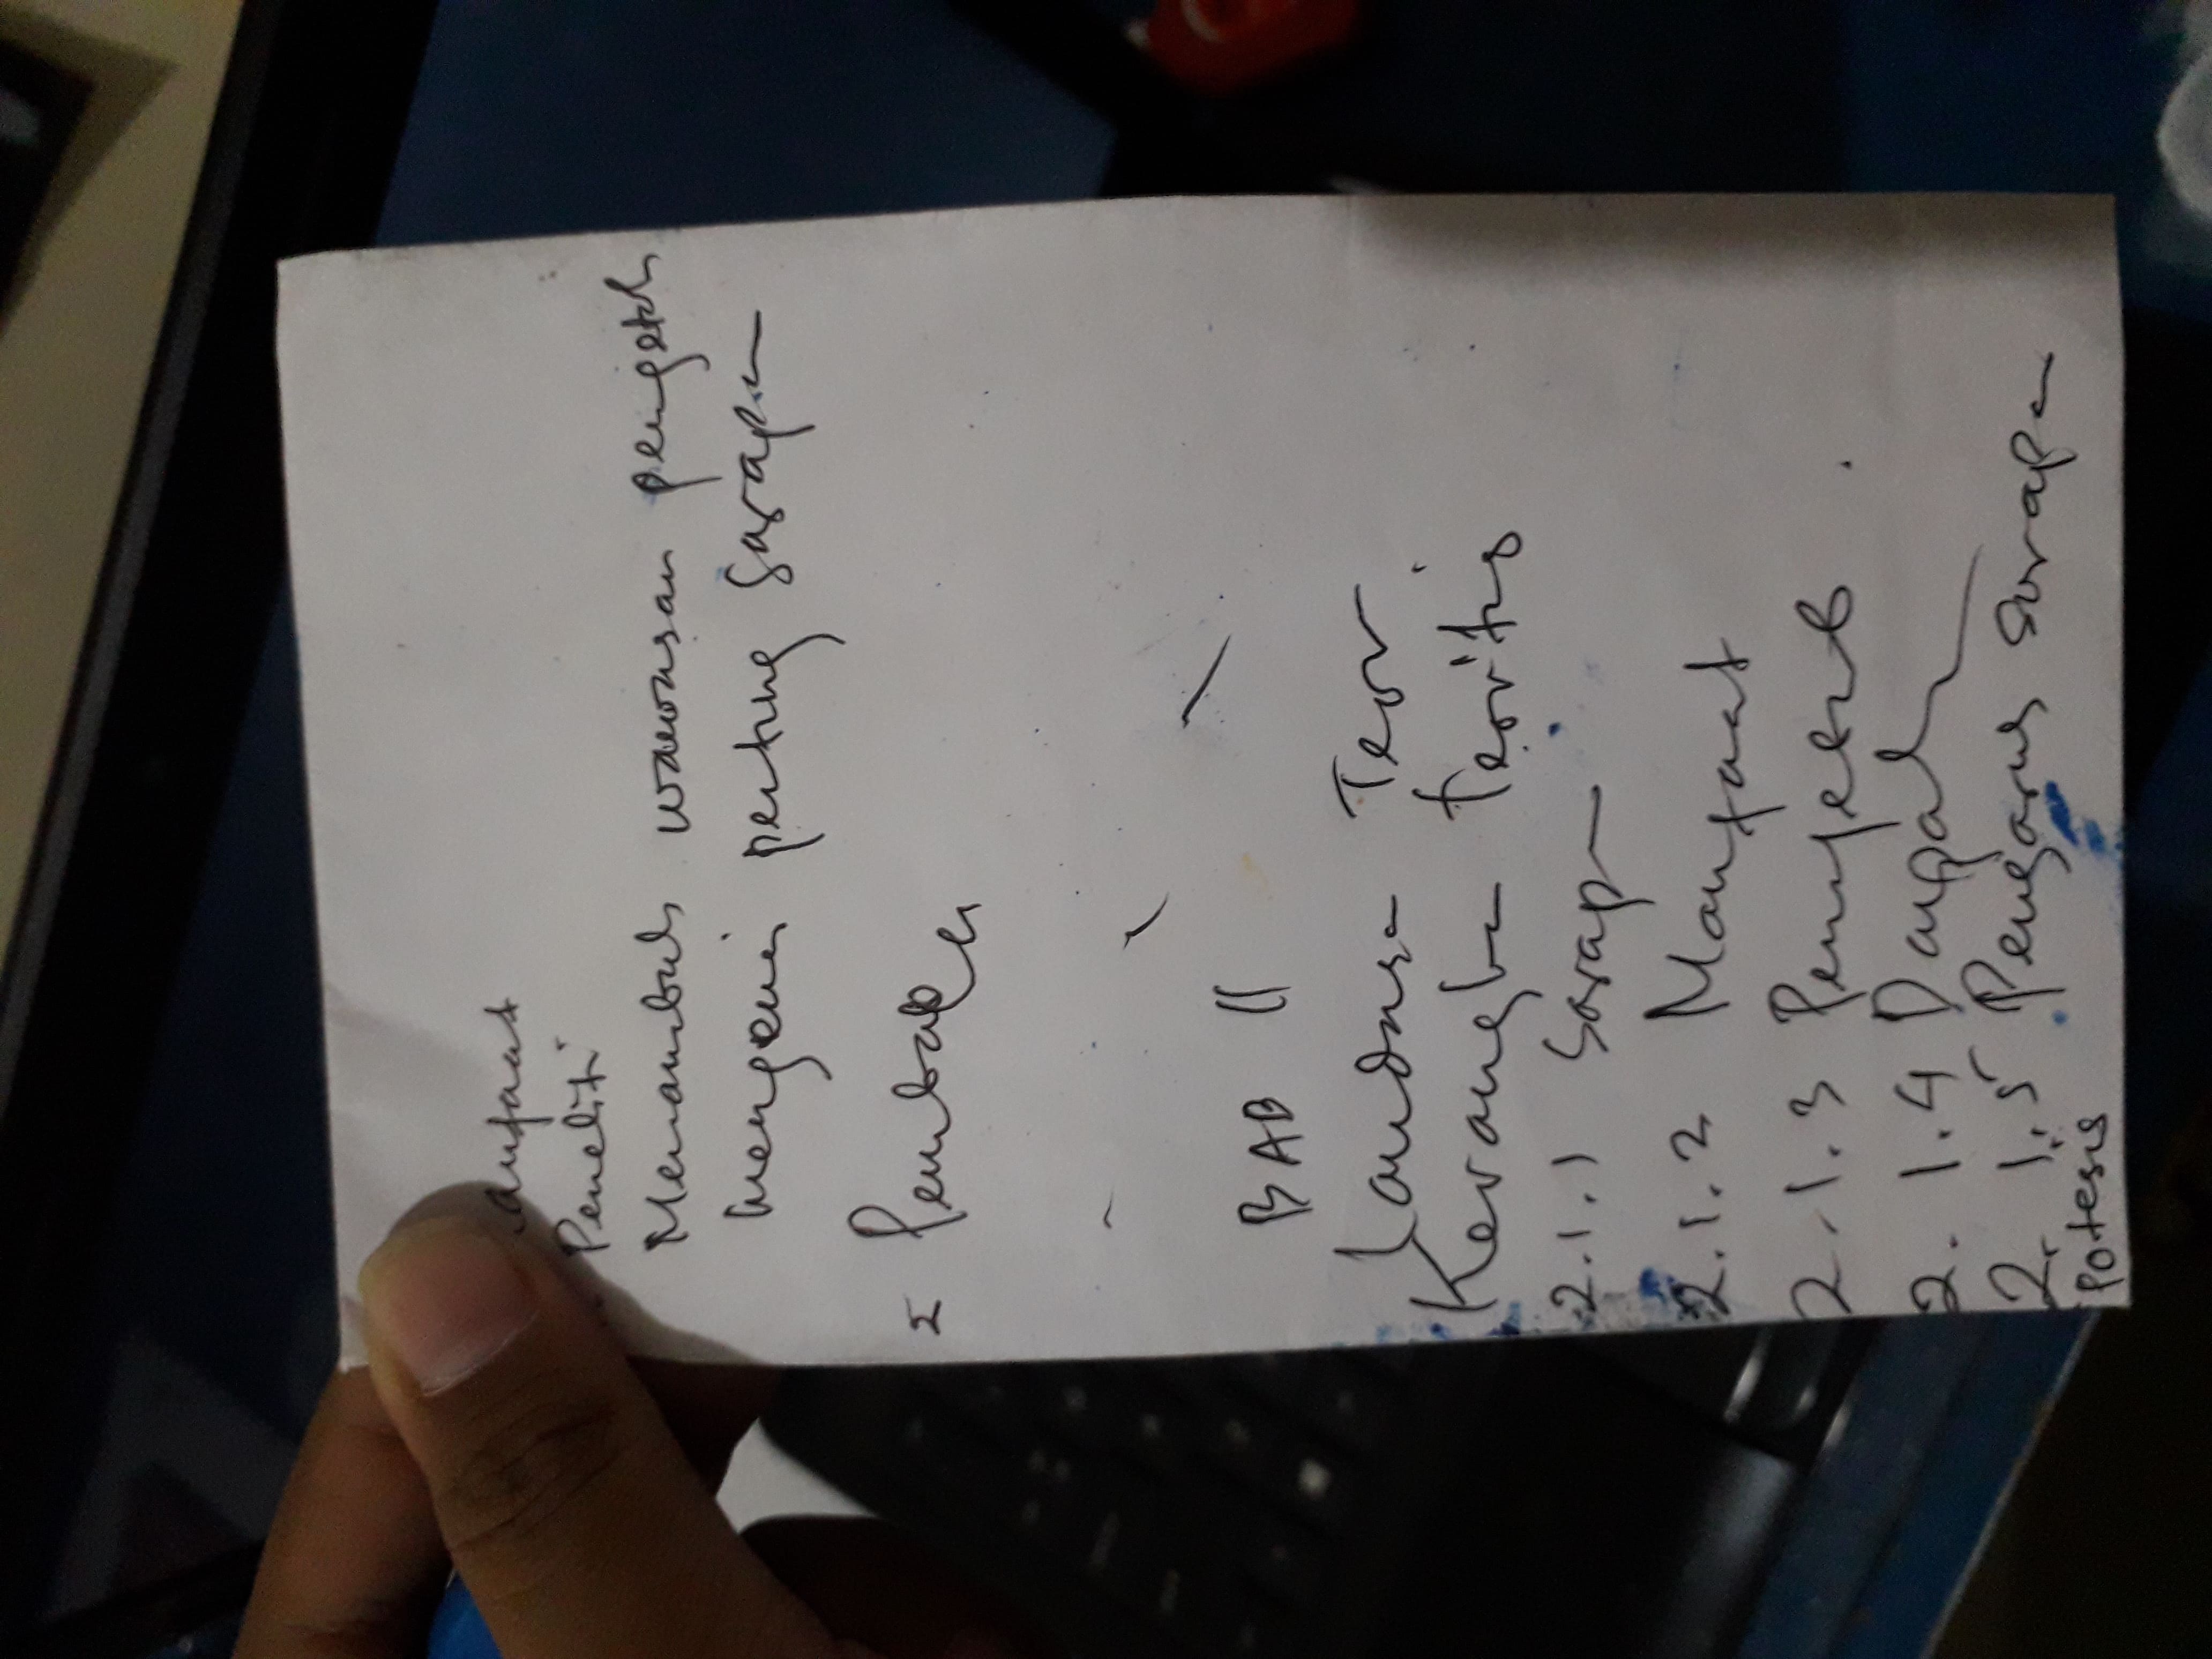 anfaat
Peneliti
Menambah wawasan pengetah
mengenai penting sarapan
2 Pembaca
BAB II
Landasan Teor
Kerangka teoritis
2.1.1 Sarapan
2.1.2 Manfaat
2.1.3 Penyebab
2.1.4 Dampak
2.1.5 Pengaruh Sarapan
potesis